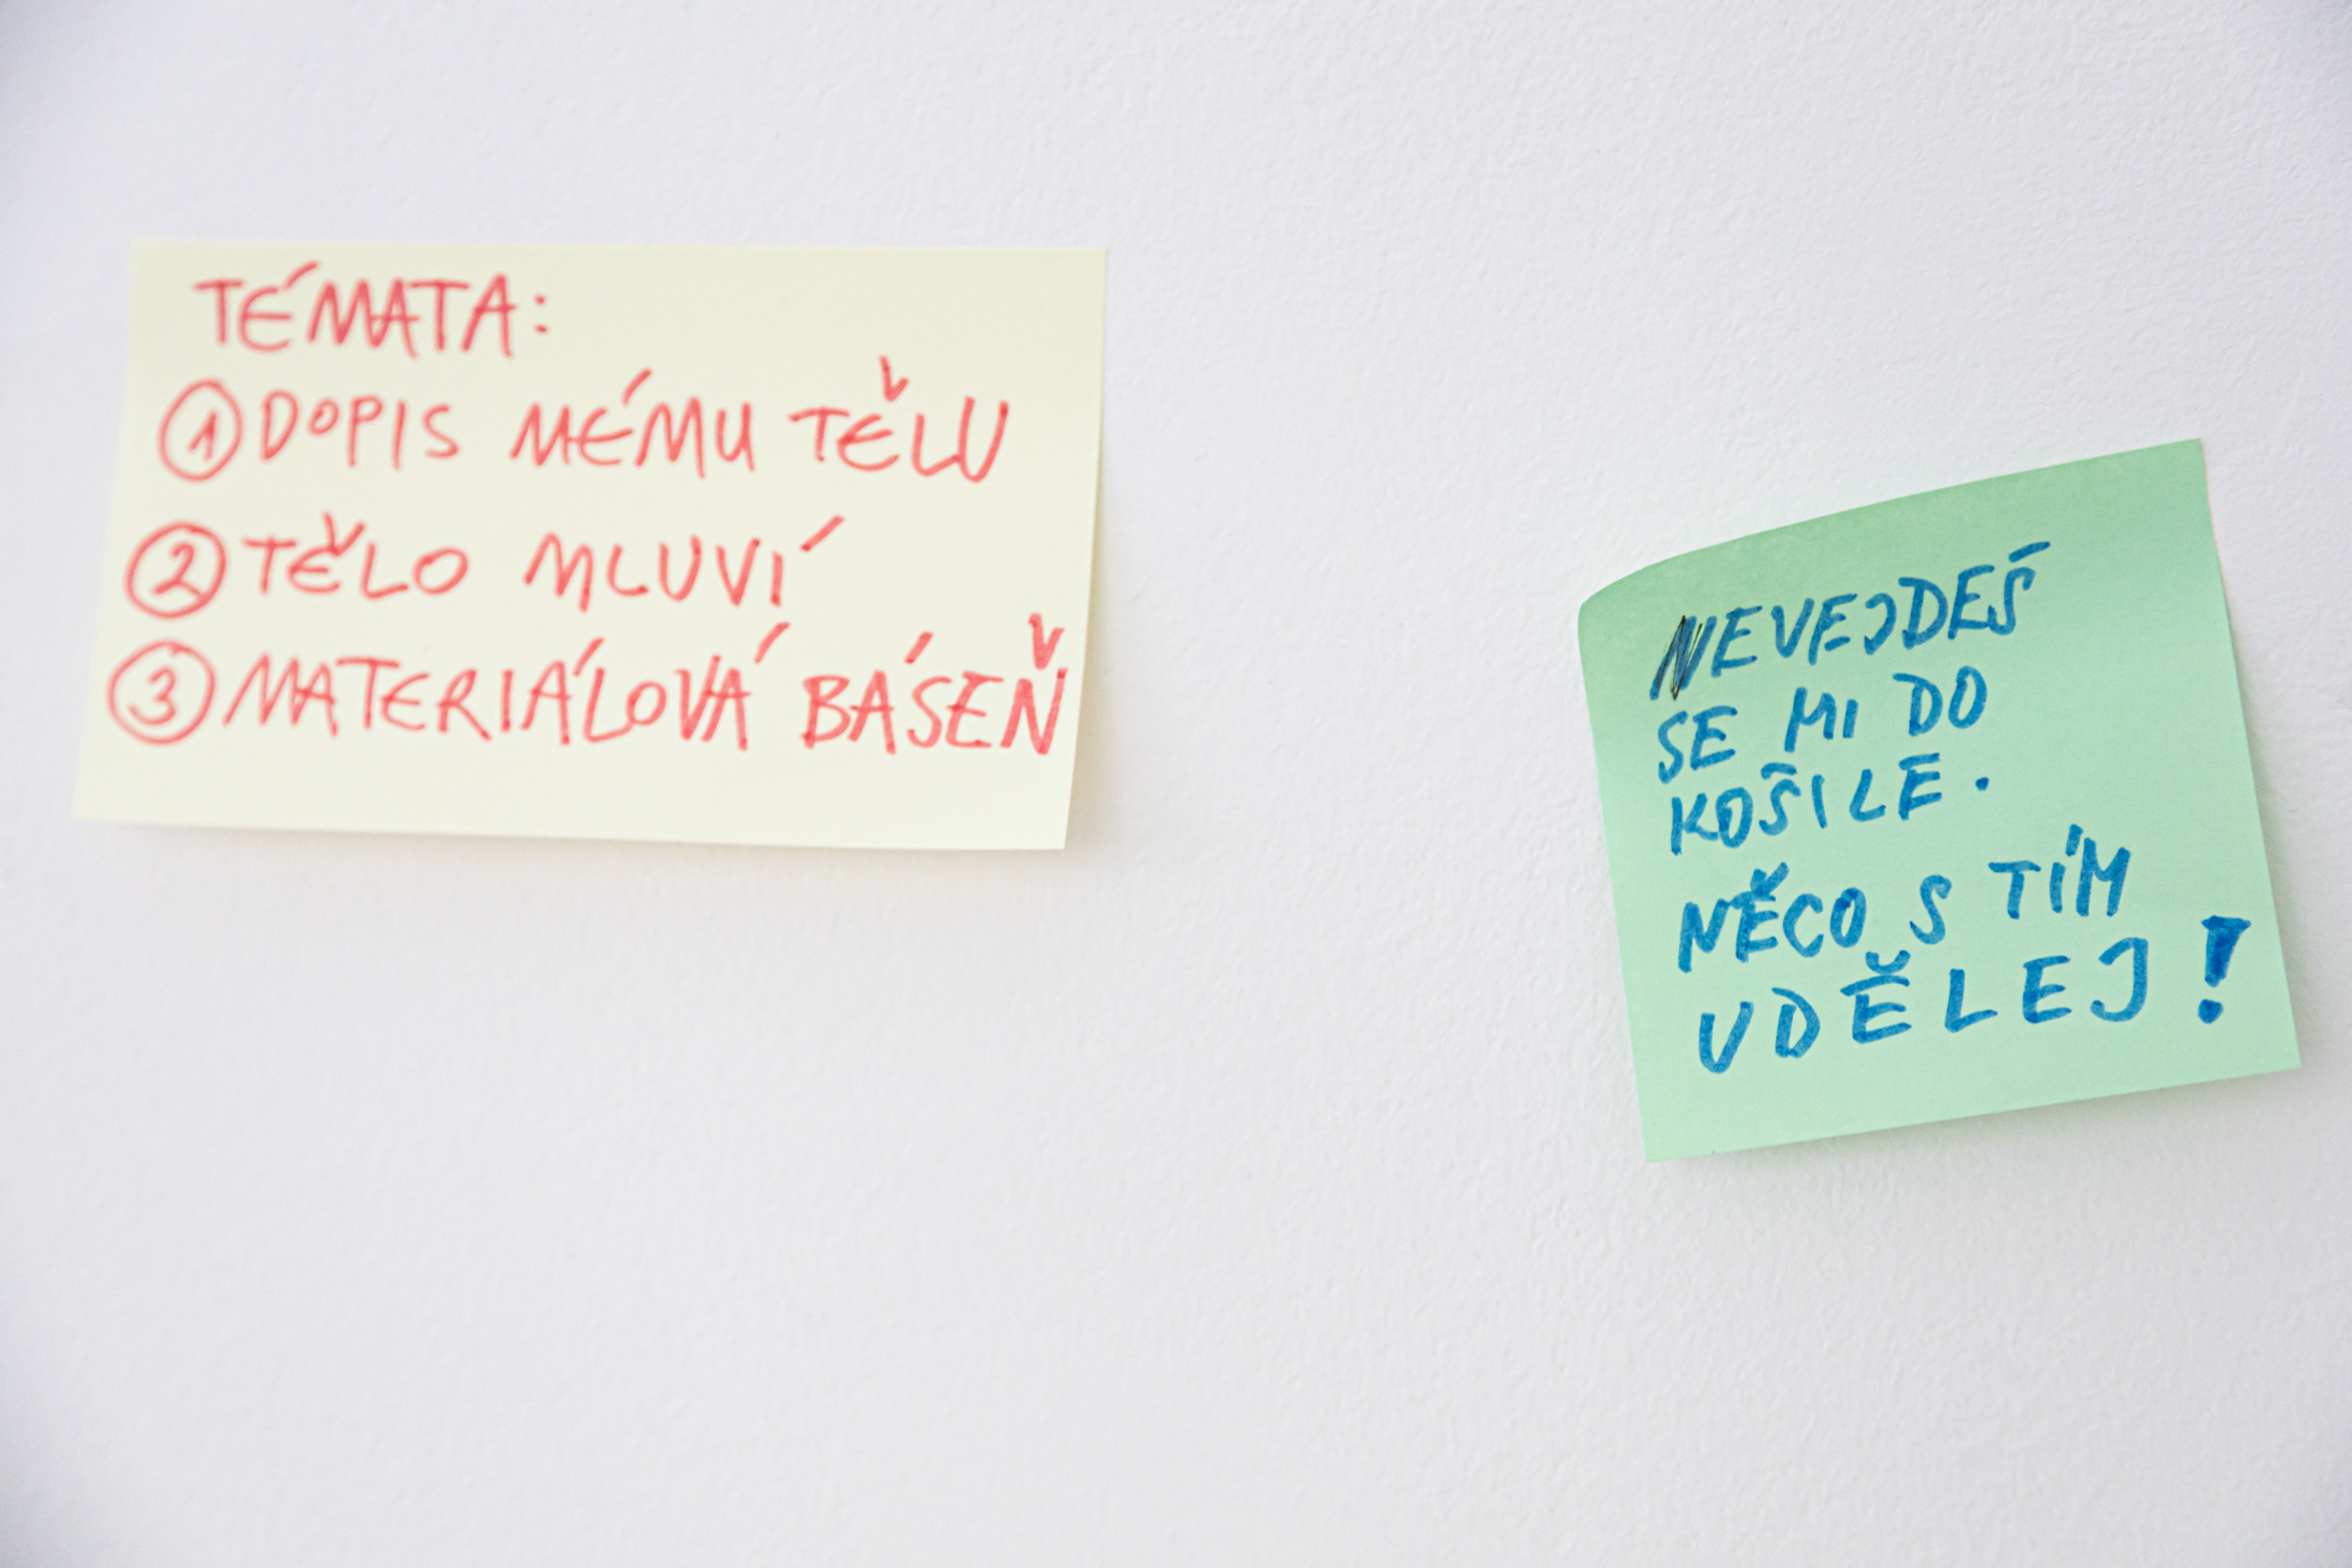 TÉMATA:
① DOPIS MÉMU TĚLU
② TĚLO MLUVÍ
③ MATERIÁLOVÁ BÁSEŇ
NEVEJDEŠ
SE MI DO
KOŠILE.
NĚCO S TÍM
UDĚLEJ!